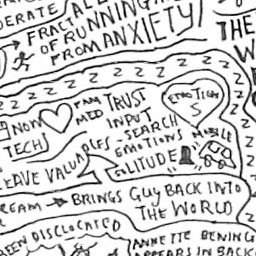 ERATE
FRACTAL
OF RUNNING
FROM ANXIETY
THE
W
Z Z Z Z Z Z Z Z Z Z
NOW
TECH
MED
TRUST
INPUT
-SEARCH
EMOTIONS
SOLITUDE
EMOTION
S
MOBILE
LEAVE VALUABLES
REAM → BRINGS GUY BACK INTO
THE WORLD
BEEN DISCLOCATED
ANNETTE BENING
APPEARS IN BACK